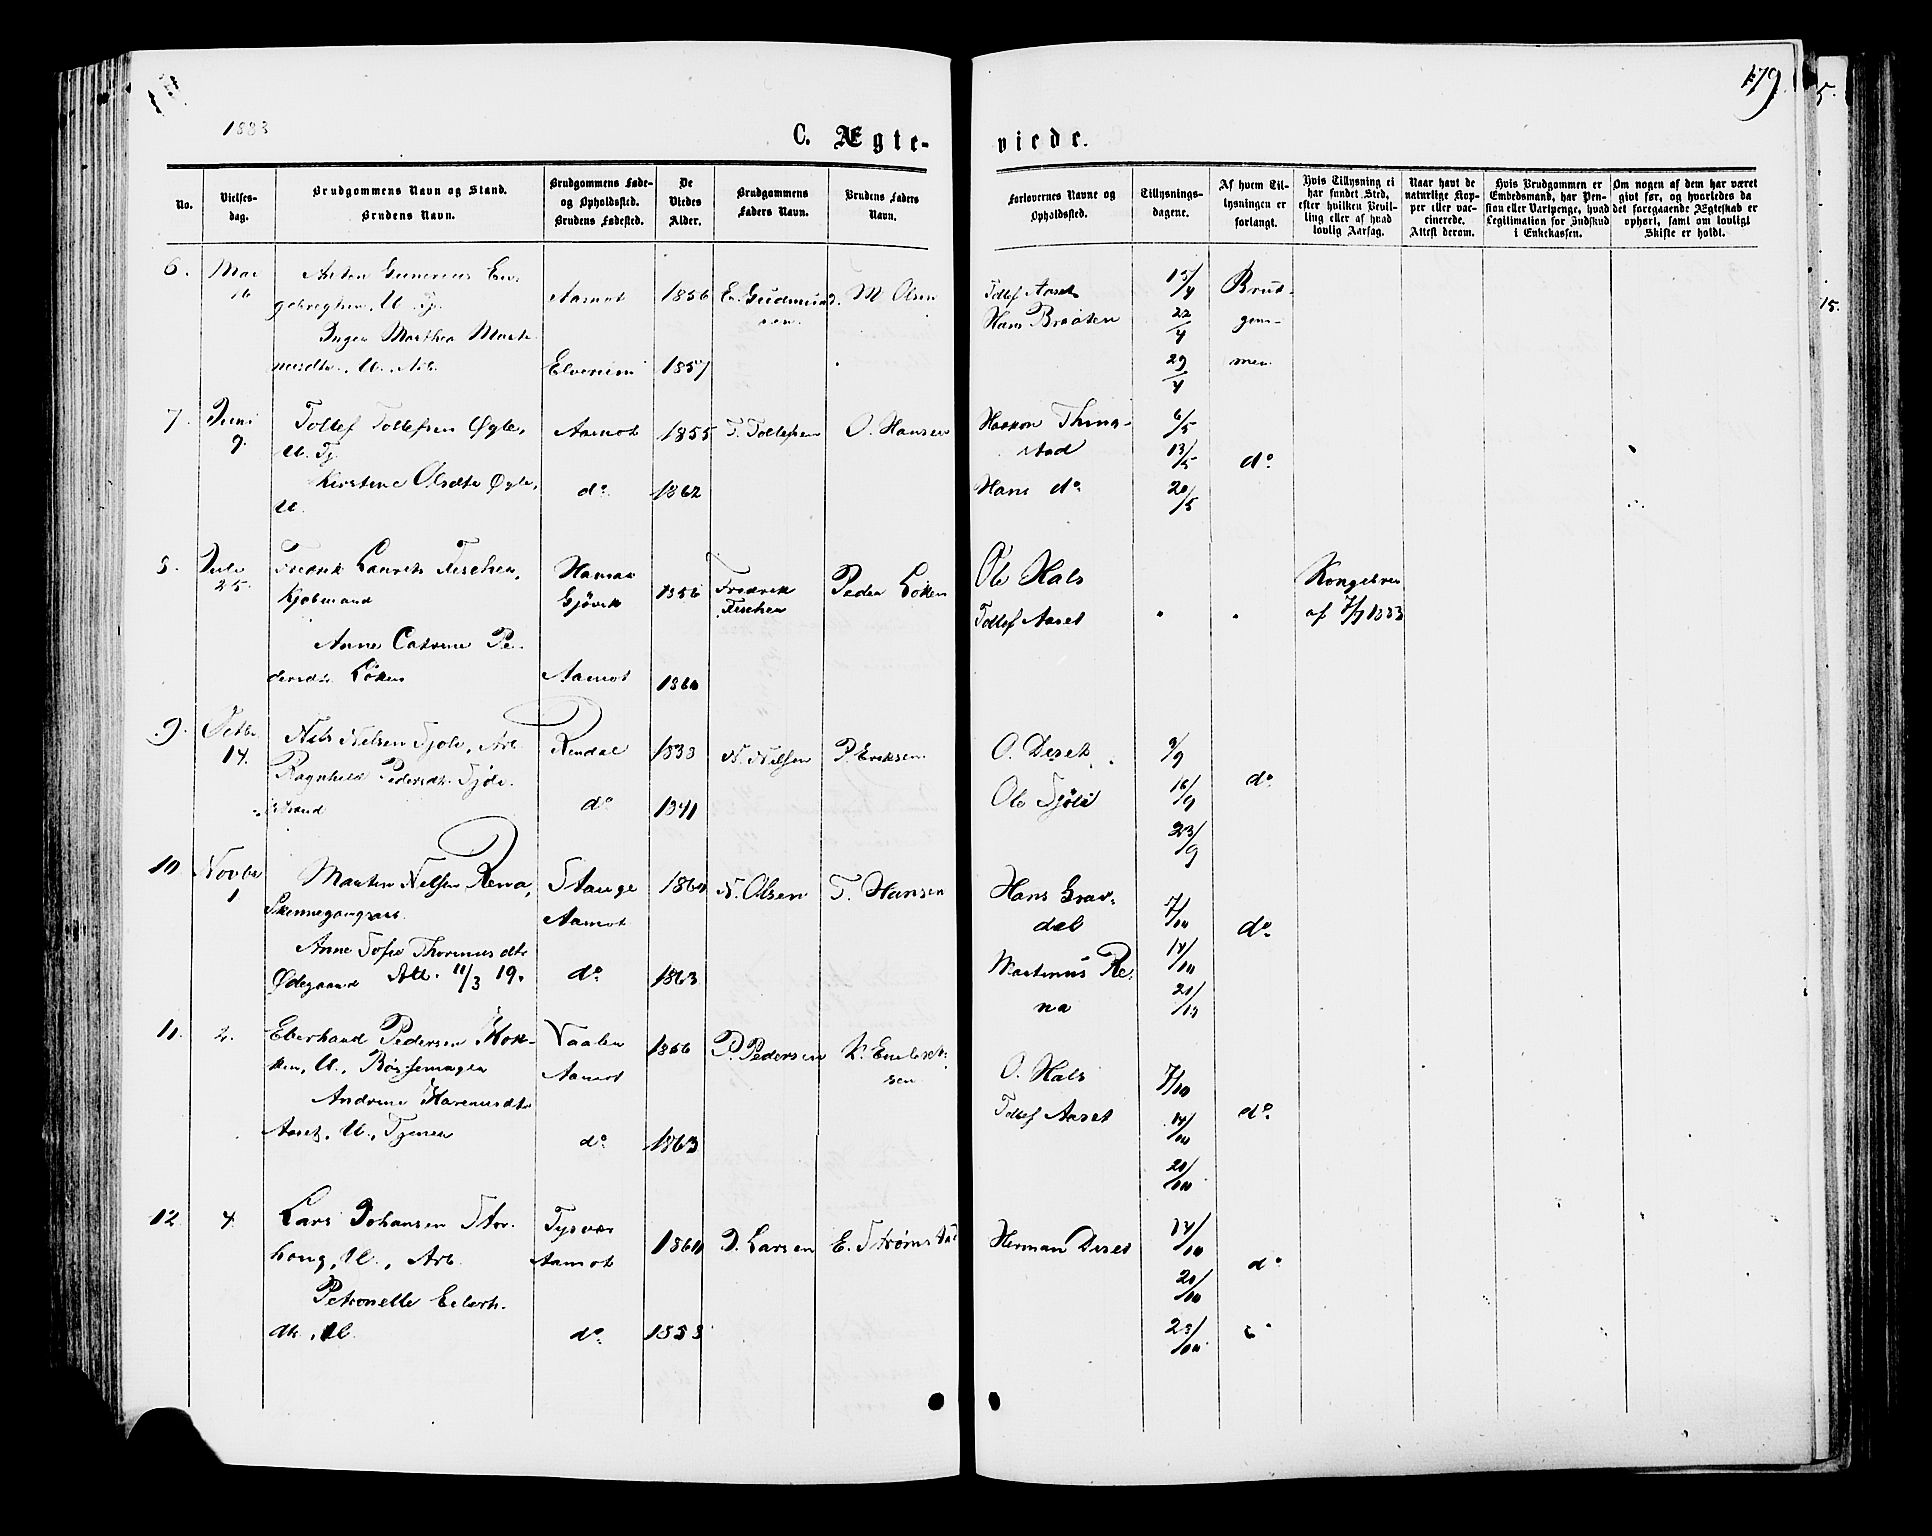 1883
179
C. Ægte-
viede.
No.
Vielses-
dag.
Brudgommens Navn og Stand.
Brudens Navn.
Brudgommens Føde-
og Opholdssted.
Brudens Fødested.
De
Viedes
Alder.
Brudgommens
Faders Navn.
Brudens Faders
Navn.
Forlovernes Navne og
Opholdssted.
Tillysnings-
dagene.
Af hvem Til-
lysningen er
forlangt.
Hvis Tillysning ei
har fundet Sted,
efter hvilken Bevil-
ling eller af hvad
lovlig Aarsag.
Naar havt de
naturlige Kop-
per eller vac-
cinerede.
Attest derom.
Hvis Brudgommen er
Embedsmand, har Pen-
sion eller Vartpenge, hvad
Legitimation for Indskud
i Enkekassen.
Om nogen af dem har været
gift før, og hvorledes da
det foregaaende Ægteskab er
ophørt, samt om lovligt
Skifte er holdt.
6.
Mai
16
Anton Gunerius En-
gebregtsen, U. Tj.
Inger Marthea Mart-
nusdtr., U., Arb.
Aamot
Elverum
1856
1857
En. Gudmund-
sen.
M. Olsen
Tollef Aaset
Hans Braaten
15/4
22/4
29/4
Brud-
gom-
men
7.
Juni
9.
Tollef Tollefsen Øgle,
U. Tj.
Kirstine Olsdtr Øgle,
U.
Aamot
do
1855
1862
T. Tollefsen
O. Hansen
Haakon Thing-
stad
Hans do
6/5
13/5
20/5
do
8.
Juli
25.
Fredrik Laurits Fischer,
Kjøbmand
Anne Catrine Pe-
dersdtr. Løken
Hamar
Gjøvik
Aamot
1856
1860
Fredrik
Fischer
Peder Løken
Ole Hals
Tollef Aaset
Kongebrev
af 7/7 1883
9.
Octbr.
14.
Nils Nilsen Sjøli, Arb.
Ragnhild Pedersdtr. Sjøli
Rendal
do
1833
1841
N. Nilsen
P. Eriksen
O. Deset
Ole Sjøli
9/9
16/9
23/9
do
10
Novbr
1
Martin Nilsen Rena,
Anne Sofie Thorinusdtr
Ødegaard Att. 11/3 19.
Stange
Aamot
do
1860
1863
N. Olsen
T. Hansen
Hans Grav-
dal
Martinus Re-
na
7/10
14/10
21/10
do
11.
2.
Eberhard Pedersen Hok-
ken, U., Børsemager
Andrine Karenusdtr
Aaset, U., Tjener
Vaaler
Aamot
do
1856
1863
P. Pedersen
K. Engebret-
sen
O. Hals
Tollef Aaset
7/10
14/10
21/10
do
12.
4.
Lars Johansen Stor-
haug, U., Arb.
Petronelle Eilerts-
dtr., U.
Tysvær
Aamot
do
1860
1853
J. Larsen
Herman Deset
14/10
21/10
28/10
do